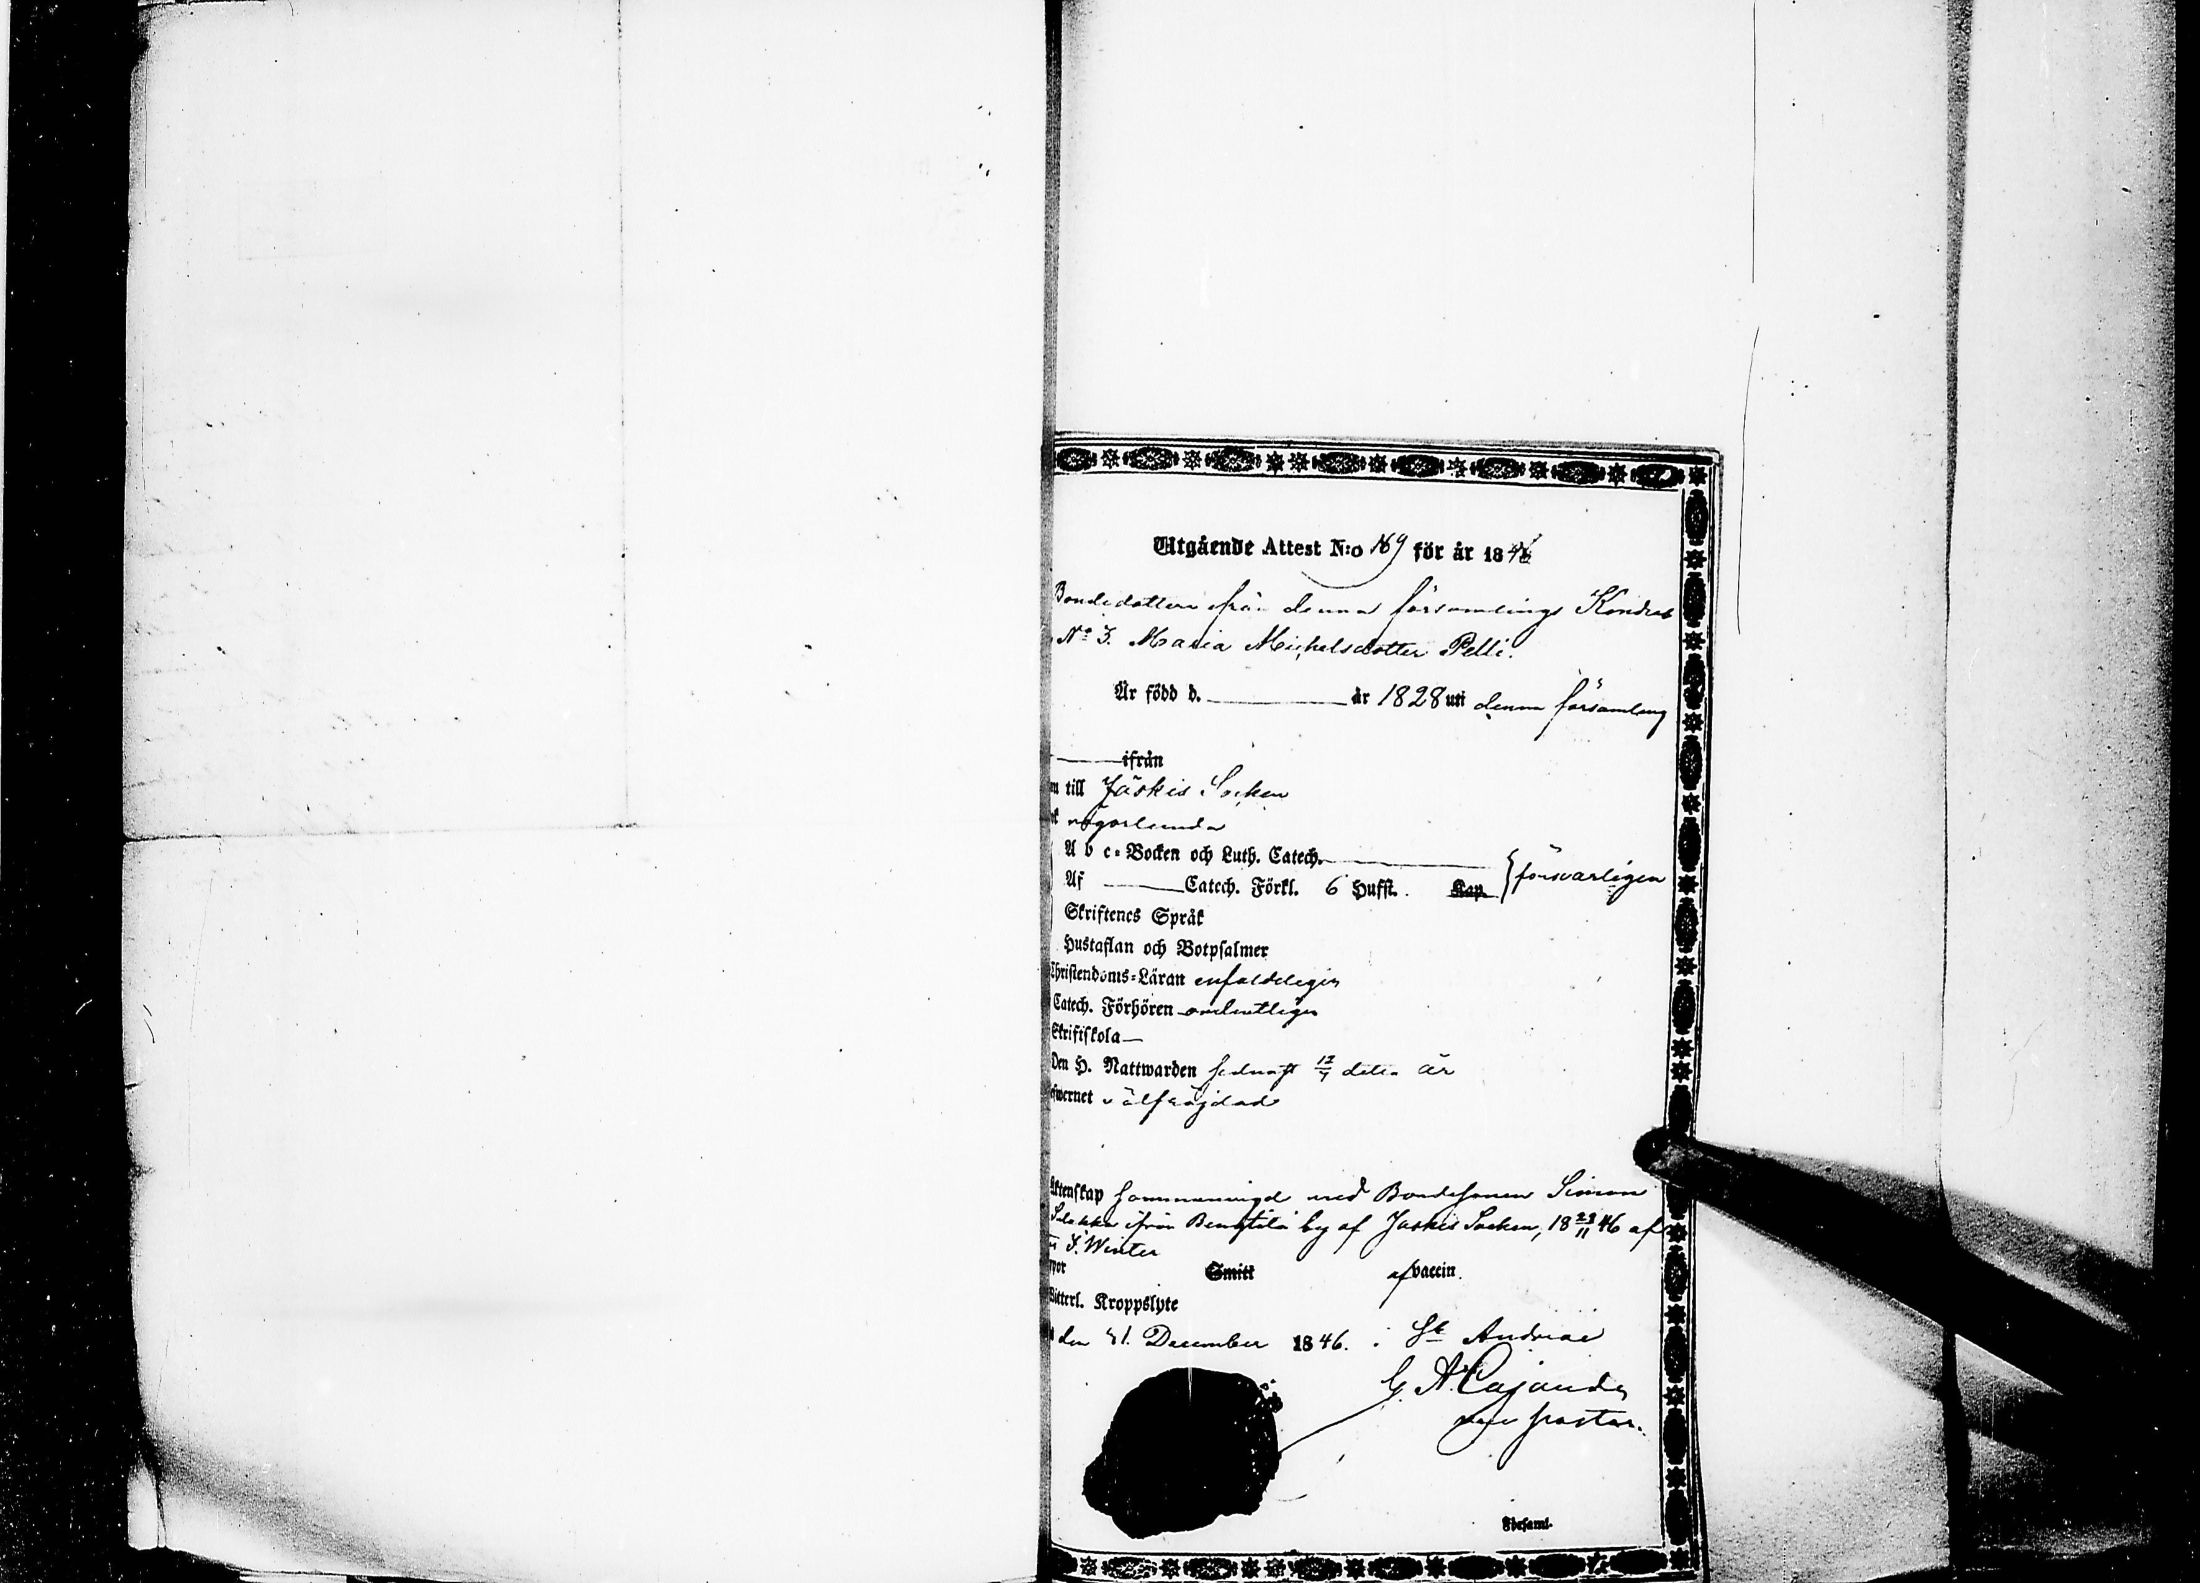 Utgående Attest N:o 169 för år 1846
Bondedottern ifrån denna församlings
N:o 3. Maria Michelsdotter Pelli.
Är född d. år 1828 uti denna församling
ifrån
till Jäskis Socken
någorlunda
A b c-Boken och Luth. Catech.
Af Catech. Förkl. 6 Hufst. Kap. försvarligen
Skriftenes Språk
Hustaflan och Botpsalmer
Christendoms-Läran enfaldeligen
Catech. Förhören ordentligen
Skriftskola
Den H. Nattwarden sednast detta år
välfräjdad
Äktenskap sammanvigd med Bondesonen Simon
ifrån by af Jäskis Socken, 18 23/11 46 af
Winter
Smitt af vaccin.
Kroppslyte
den 31. December 1846. i St Andreae
G. A. Cajander
vice pastor.
Församl.